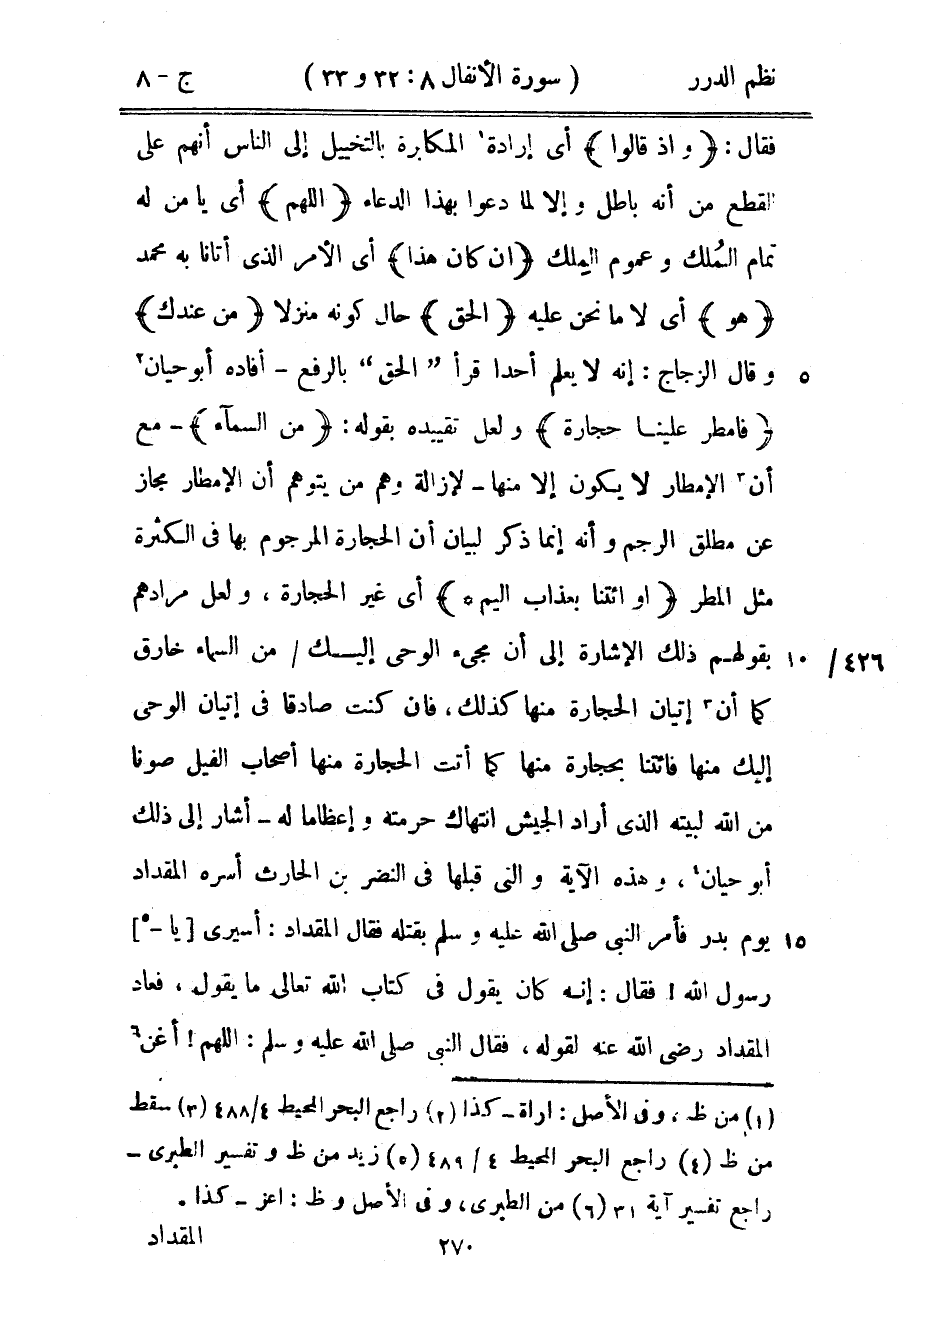 نظم الدرر ( سورة الأنفال ٨ : ٣٢ و ٣٣ ) ج - ٨
فقال : ﴿ و اذ قالوا ﴾ أى إرادة١ المكابرة بالتخييل إلى الناس أنهم على
القطع من أنه باطل و إلا لما دعوا بهذا الدعاء ﴿ اللهم ﴾ أى يا من له
تمام المُلك و عموم المِلك ﴿ ان كان هذا ﴾ أى الأمر الذى أتانا به محمد
﴿ هو ﴾ أى لا ما نحن عليه ﴿ الحق ﴾ حال كونه منزلا ﴿ من عندك ﴾
٥ و قال الزجاج : إنه لا يعلم أحدا قرأ ” الحق “ بالرفع - أفاده أبو حيان٢
﴿ فامطر علينا حجارة ﴾ و لعل تقييده بقوله : ﴿ من السمآء ﴾ - مع
أن٣ الإمطار لا يكون إلا منها - لإزالة وهم من يتوهم أن الإمطار مجاز
عن مطلق الرجم و أنه إنما ذكر لبيان أن الحجارة المرجوم بها فى الكثرة
مثل المطر ﴿ او ائتنا بعذاب اليم ه ﴾ أى غير الحجارة ، و لعل مرادهم
٤٢٦/ ١٠ بقولهم ذلك الإشارة إلى أن مجىء الوحى إليك / من السماء خارق
كما أن٣ إتيان الحجارة منها كذلك ، فان كنت صادقا فى إتيان الوحى
إليك منها فائتنا بحجارة منها كما أتت الحجارة منها أصحاب الفيل صونا
من الله لبيته الذى أراد الجيش انتهاك حرمته و إعظاما له - أشار إلى ذلك
أبو حيان٤ ، و هذه الآية و التى قبلها فى النضر بن الحارث أسره المقداد
١٥ يوم بدر فأمر النبى صلى الله عليه و سلم بقتله فقال المقداد : أسيرى [ يا -٥ ]
رسول الله ! فقال : إنه كان يقول فى كتاب الله تعالى ما يقول ، فعاد
المقداد رضى الله عنه لقوله ، فقال النبى صلى الله عليه و سلم : اللهم ! أغن٦
(١) من ظ ، و فى الأصل : اراة - كذا (٢) راجع البحر المحيط ٤/٤٨٨ (٣) سقط
من ظ (٤) راجع البحر المحيط ٤ / ٤٨٩ (٥) زيد من ظ و تفسير الطبرى -
راجع تفسير آية ٣١ (٦) من الطبرى ، و فى الأصل و ظ : اعز - كذا .
المقداد
٢٧٠